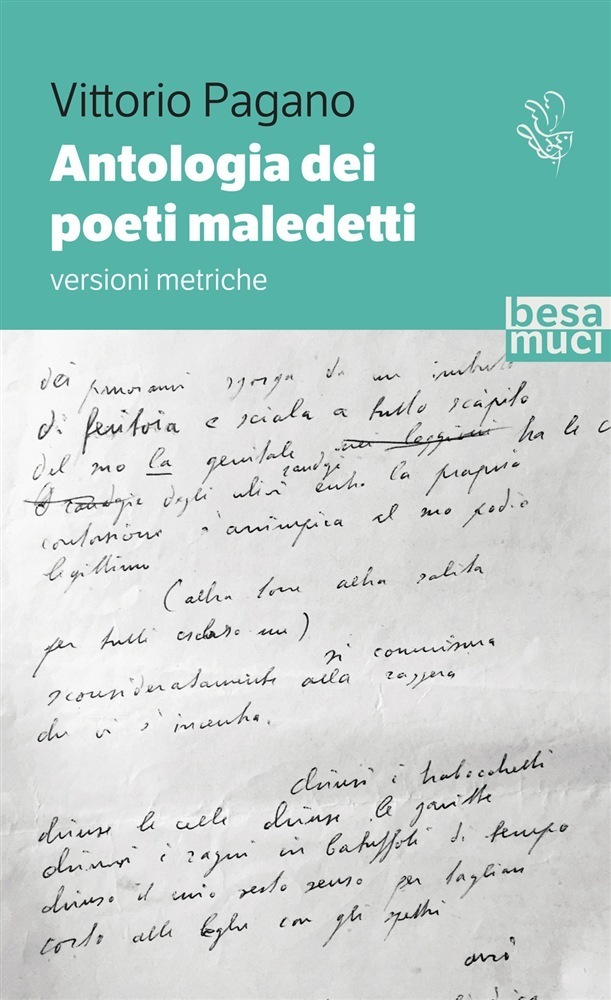 Vittorio Pagano
Antologia dei
poeti maledetti
versioni metriche
besa
muci
dei panorami sgorga da un imbuto
di feritoia e sciala a tutto scapito
del suo la genitale nei loggioni ha le c
degli ulivi entro la propria
contorsione s'arrampica al suo podio
legittimo
(altra torre altra salita
per tutti escluso me)
si commisura
sconsideratamente alla zazzera
che vi s'incentra.
chiusi i trabocchetti
chiuse le celle chiuse le garitte
chiusi i ragni in batuffoli di tempo
chiuso il mio resto senso per tagliar
corto alle beghe con gli spettri